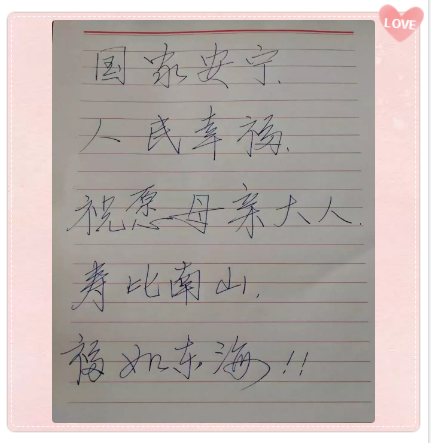 LOVE
国家安宁.
人民幸福.
祝愿母亲大人.
寿比南山.
福如东海!!